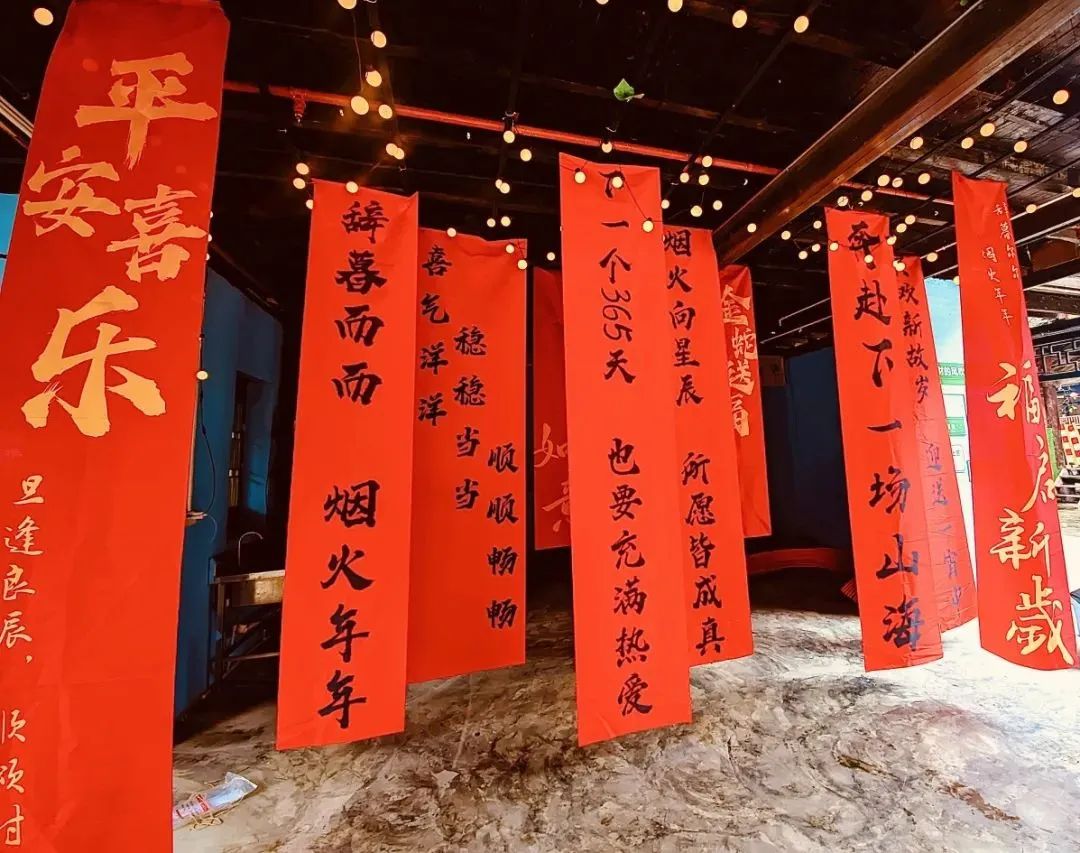 平安喜乐
旦逢良辰，顺颂时
辞暮而而
烟火年年
喜气洋洋
稳稳当当
顺顺畅畅
如意
下一个365天
也要充满热爱
烟火向星辰
所愿皆成真
金蛇送福
奔赴下一场山海
改新故岁
迎送
烟火年年
福启新歲